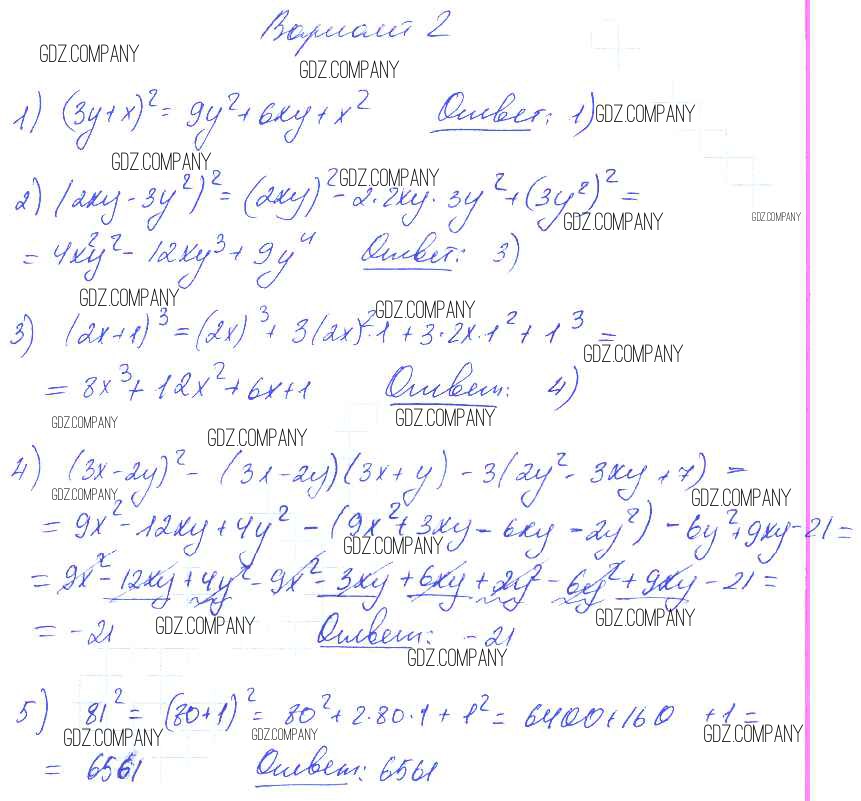 Вариант 2
GDZ.COMPANY
GDZ.COMPANY
1) (3y+x)² = 9y² + 6xy + x² Ответ: 1) GDZ.COMPANY
GDZ.COMPANY
GDZ.COMPANY
2) (2xy - 3y²)² = (2xy)² - 2·2xy·3y² + (3y²)² =
GDZ.COMPANY
GDZ.COMPANY
= 4x²y² - 12xy³ + 9y⁴ Ответ: 3)
GDZ.COMPANY
GDZ.COMPANY
3) (2x+1)³ = (2x)³ + 3(2x)²·1 + 3·2x·1² + 1³ =
GDZ.COMPANY
= 8x³ + 12x² + 6x + 1 Ответ: 4)
GDZ.COMPANY
GDZ.COMPANY
GDZ.COMPANY
4) (3x-2y)² - (3x-2y)(3x+y) - 3(2y² - 3xy + 7) =
GDZ.COMPANY
GDZ.COMPANY
= 9x² - 12xy + 4y² - (9x² + 3xy - 6xy - 2y²) - 6y² + 9xy - 21 =
GDZ.COMPANY
= 9x² - 12xy + 4y² - 9x² - 3xy + 6xy + 2y² - 6y² + 9xy - 21 =
GDZ.COMPANY
GDZ.COMPANY
= -21 Ответ: -21
GDZ.COMPANY
5) 81² = (80+1)² = 80² + 2·80·1 + 1² = 6400 + 160 + 1 =
GDZ.COMPANY
GDZ.COMPANY
GDZ.COMPANY
= 6561 Ответ: 6561